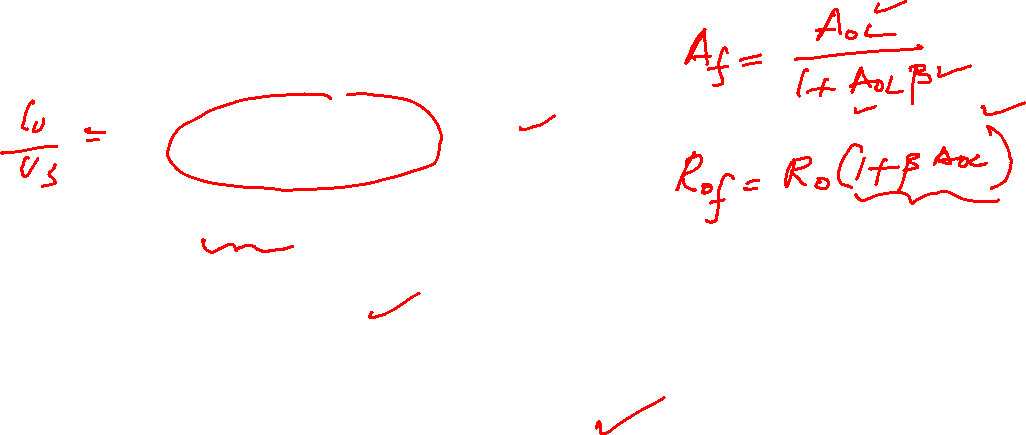 i₀/v_s =
A_f = A_OL / (1 + A_OL β)
R_of = R_o (1 + β A_OL)